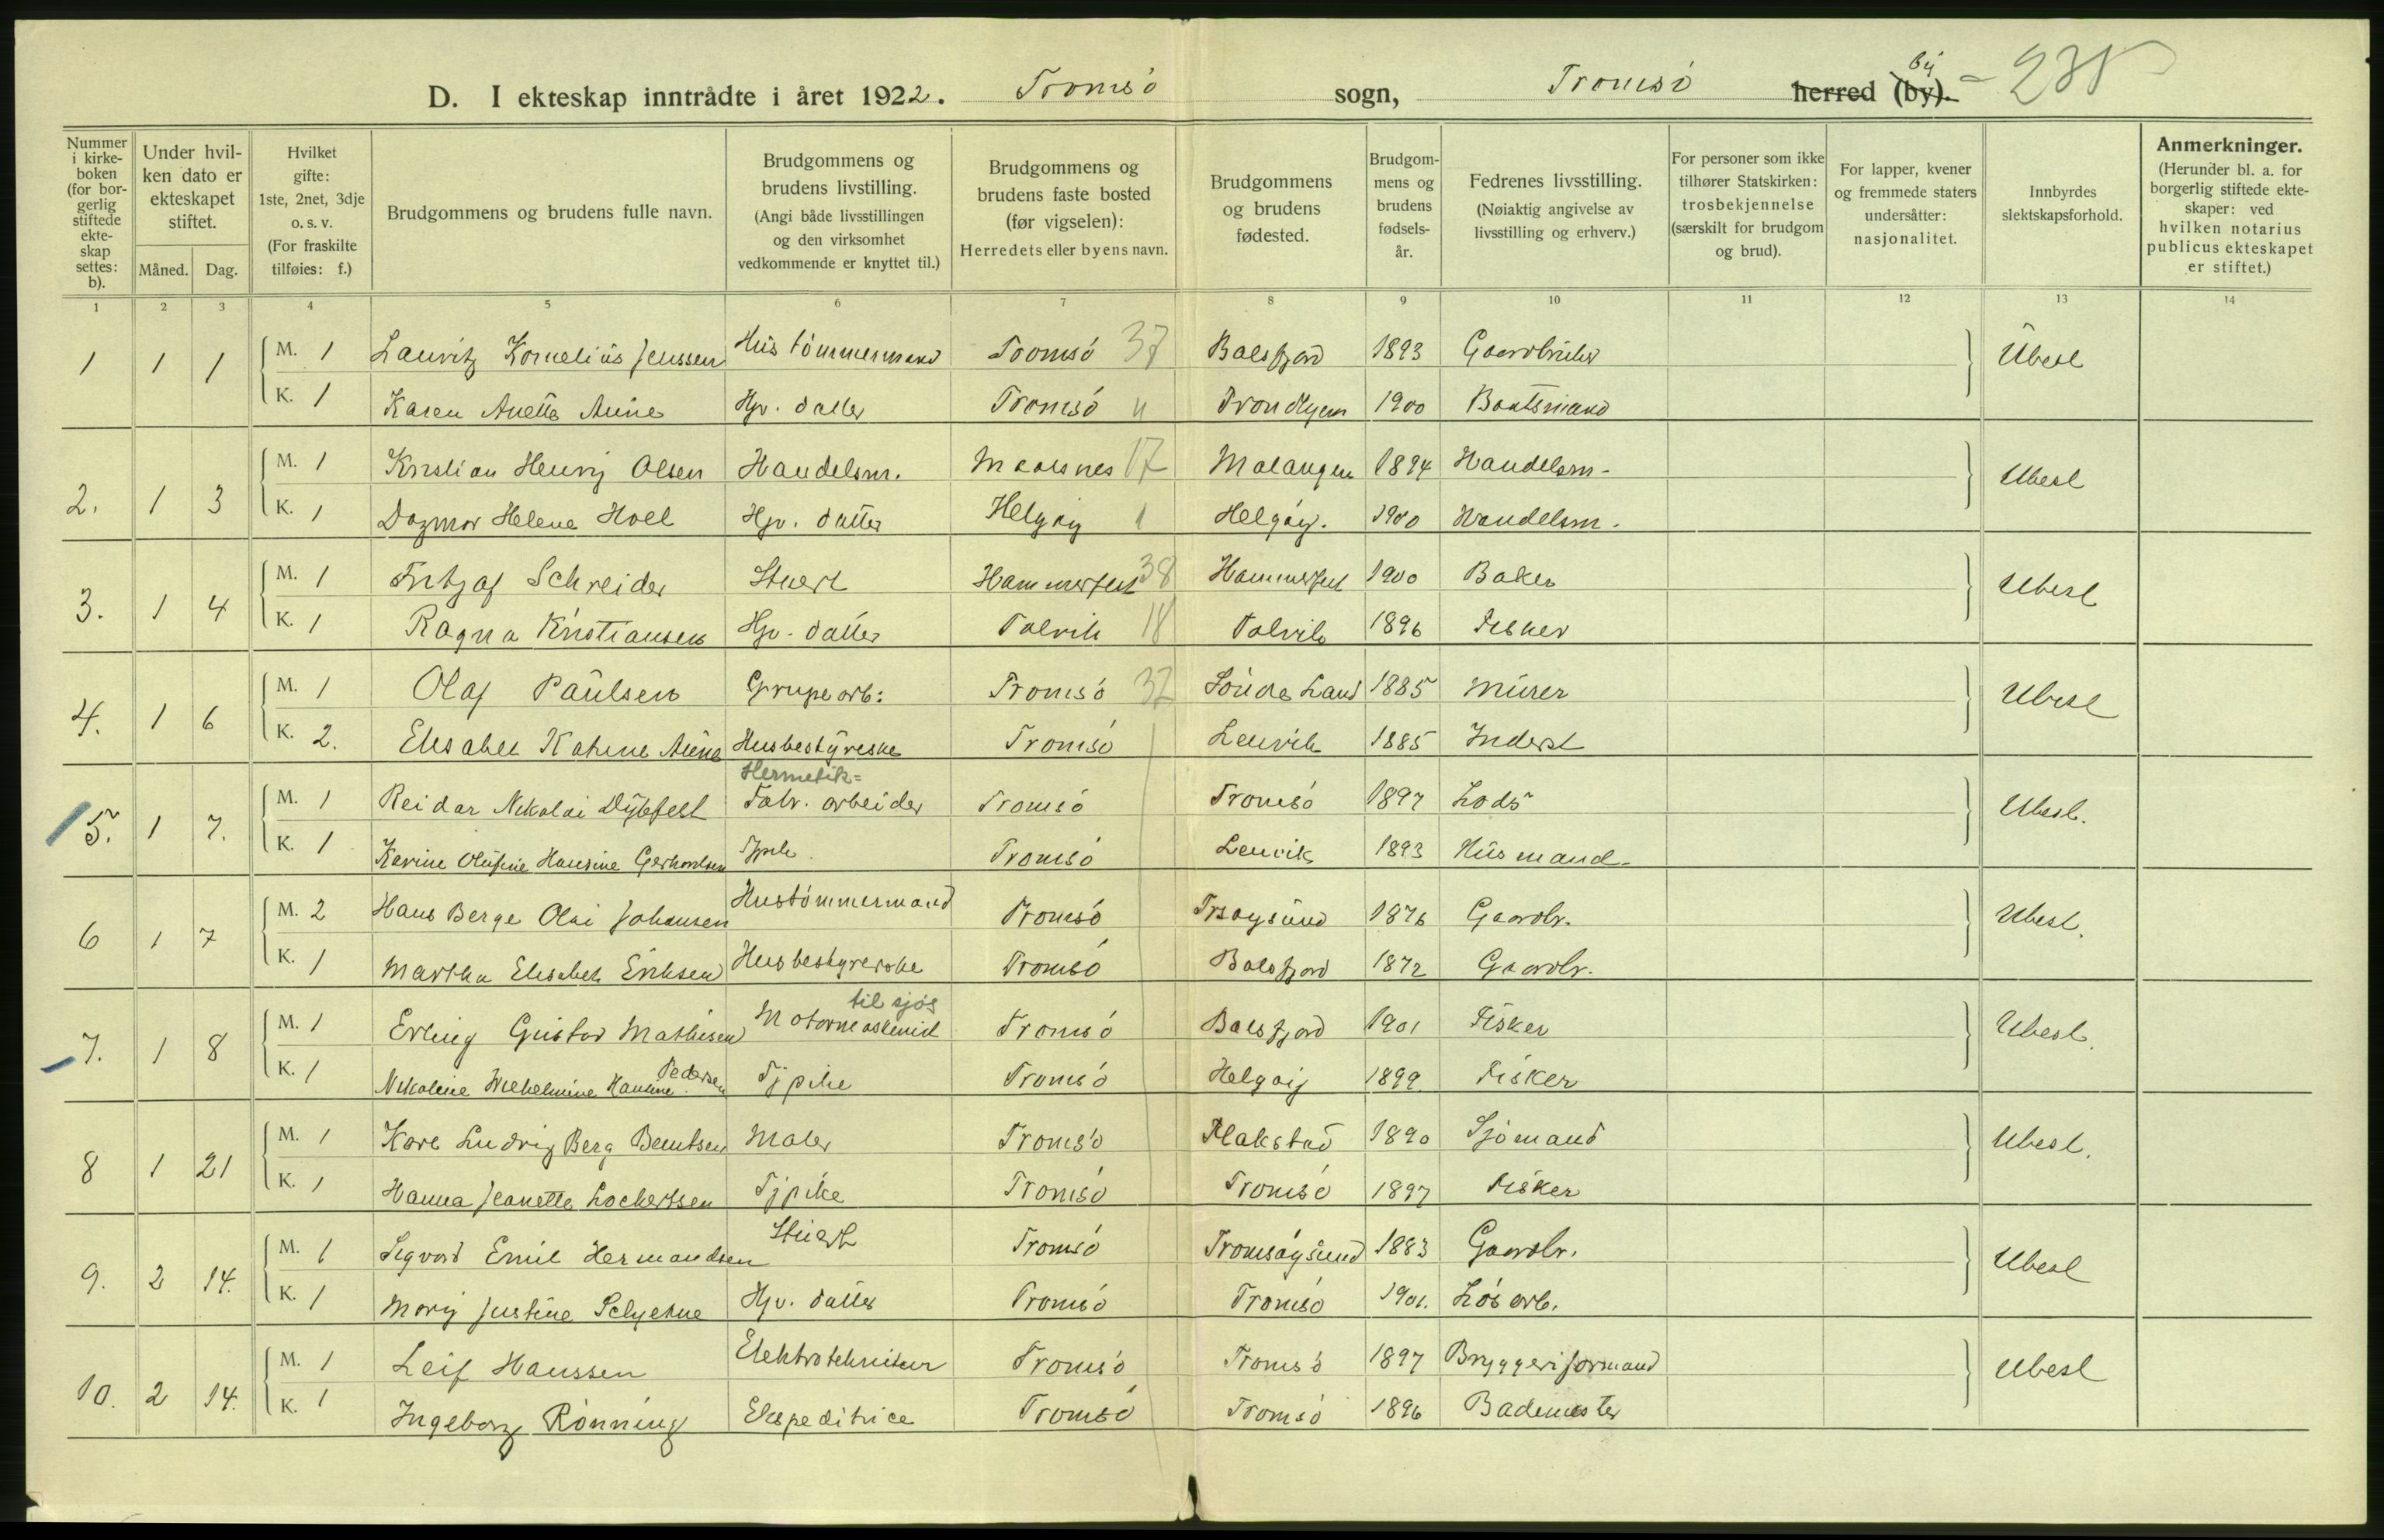 D. I ekteskap inntrådte i året 1922. Tromsö sogn, Tromsö herred (by). by - 238
Nummer i kirkeboken (for borgerlig stiftede ekteskap settes: b).
Under hvilken dato er ekteskapet stiftet.
Måned. Dag.
Hvilket gifte: 1ste, 2net, 3dje o. s. v. (For fraskilte tilføies: f.)
Brudgommens og brudens fulle navn.
Brudgommens og brudens livstilling. (Angi både livsstillingen og den virksomhet vedkommende er knyttet til.)
Brudgommens og brudens faste bosted (før vigselen): Herredets eller byens navn.
Brudgommens og brudens fødested.
Brudgommens og brudens fødselsår.
Fedrenes livsstilling. (Nøiaktig angivelse av livsstilling og erhverv.)
For personer som ikke tilhører Statskirken: trosbekjennelse (særskilt for brudgom og brud).
For lapper, kvener og fremmede staters undersåtter: nasjonalitet.
Innbyrdes slektskapsforhold.
Anmerkninger. (Herunder bl. a. for borgerlig stiftede ekteskaper: ved hvilken notarius publicus ekteskapet er stiftet.)
1 2 3 4 5 6 7 8 9 10 11 12 13 14
1 1 1 M. 1 Lauritz Kornelius Jenssen Hustömmermand Tromsö 37 Balsfjord 1893 Gaardbruker Ubesl
K. 1 Karen Anette Aune Hjv. datter Tromsö 4 Trondhjem 1900 Baatsmand
2. 1 3 M. 1 Kristian Henrij Olsen Handelsm. Maasnes 17 Malangen 1894 Handelsm. Ubesl
K. 1 Dagmar Helene Hoel Hjv. datter Helgöy 1 Helgöy. 1900 Handelsm.
3. 1 4 M. 1 Fritjof Schreider Stuert Hammerfest 38 Hammerfest 1900 Baker Ubesl
K. 1 Ragna Kristiansen Hjv. datter Talvik 18 Talvik 1896 Fisker
4. 1 6 M. 1 Olaf Paulsen Grupearb: Tromsö 37 Söndre Land 1885 Murer Ubesl
K. 2. Elisabet Katrine Aune Husbestyreske Tromsö Lenvik 1885 Inderst
5. 1 7. M. 1 Reidar Nikolai Dybfest Hermetik= Fabr. arbeider Tromsö Tromsö 1897 Lods Ubesl.
K. 1 Karine Olufine Hansine Gerhardsen Tjpike Tromsö Lenvik 1893 Husmand
6 1 7 M. 2 Hans Berge Olai Johansen Hustömmermand Tromsö Trsöysund 1876 Gaardbr. Ubesl.
K. 1 Martha Elisabet Eriksen Husbestyrerske Tromsö Balsfjord 1872 Gaardbr.
7. 1 8 M. 1 Erling Gustav Mathisen Motormaskinist til sjös Tromsö Balsfjord 1901 Fisker Ubesl.
K. 1 Nikoline Wilhelmine Hansine Pedersen Tjpike Tromsö Helgöij 1899 Fisker
8 1 21 M. 1 Karl Ludvig Berg Berntsen Maler Tromsö Flakstad 1890 Sjömand Ubesl.
K. 1 Hanna Jeanette Lockertsen Tjpike Tromsö Tromsö 1897 Fisker
9. 2 14. M. 1 Sigvard Emil Hermandsen Stuert Tromsö Tromsöysund 1883 Gaardbr. Ubesl
K. 1 Marij Justine Selyehne Hjv. datter Tromsö Tromsö 1901. Lösarb.
10. 2 14. M. 1 Leif Hanssen Elektrotekniker Tromsö Tromsö 1897 Bryggeriformand Ubesl
K. 1 Ingeborg Rönning Ekspeditrice Tromsö Tromsö 1896 Bademester